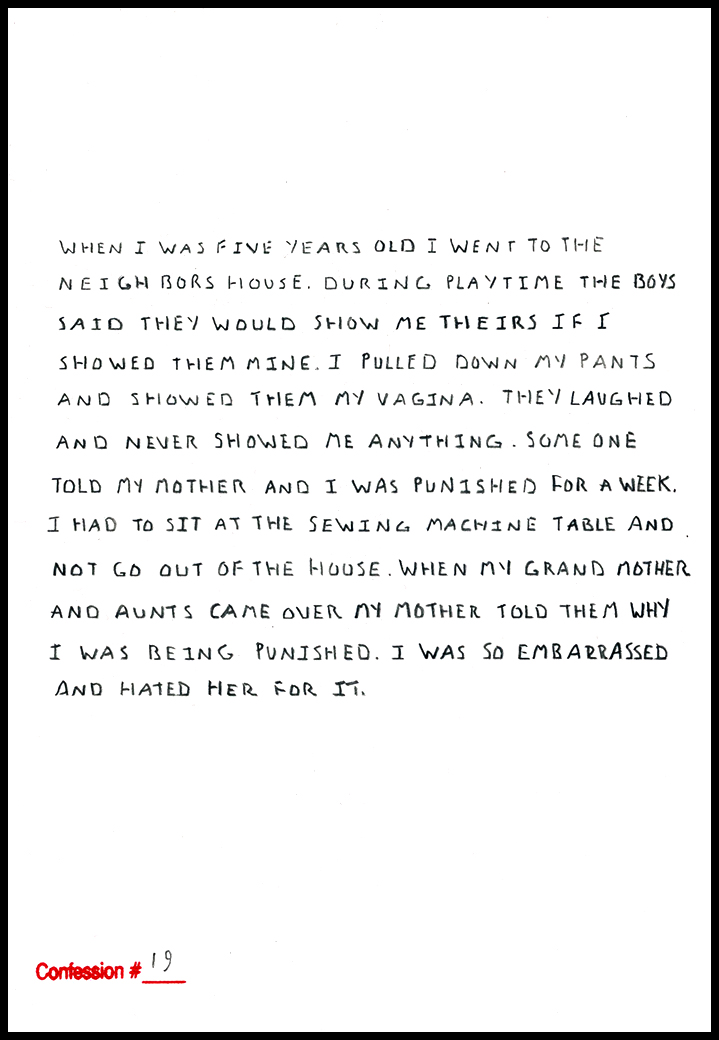 WHEN I WAS FIVE YEARS OLD I WENT TO THE
NEIGHBORS HOUSE. DURING PLAYTIME THE BOYS
SAID THEY WOULD SHOW ME THEIRS IF I
SHOWED THEM MINE. I PULLED DOWN MY PANTS
AND SHOWED THEM MY VAGINA. THEY LAUGHED
AND NEVER SHOWED ME ANYTHING. SOMEONE
TOLD MY MOTHER AND I WAS PUNISHED FOR A WEEK.
I HAD TO SIT AT THE SEWING MACHINE TABLE AND
NOT GO OUT OF THE HOUSE. WHEN MY GRAND MOTHER
AND AUNTS CAME OVER MY MOTHER TOLD THEM WHY
I WAS BEING PUNISHED. I WAS SO EMBARRASSED
AND HATED HER FOR IT.
Confession # 19